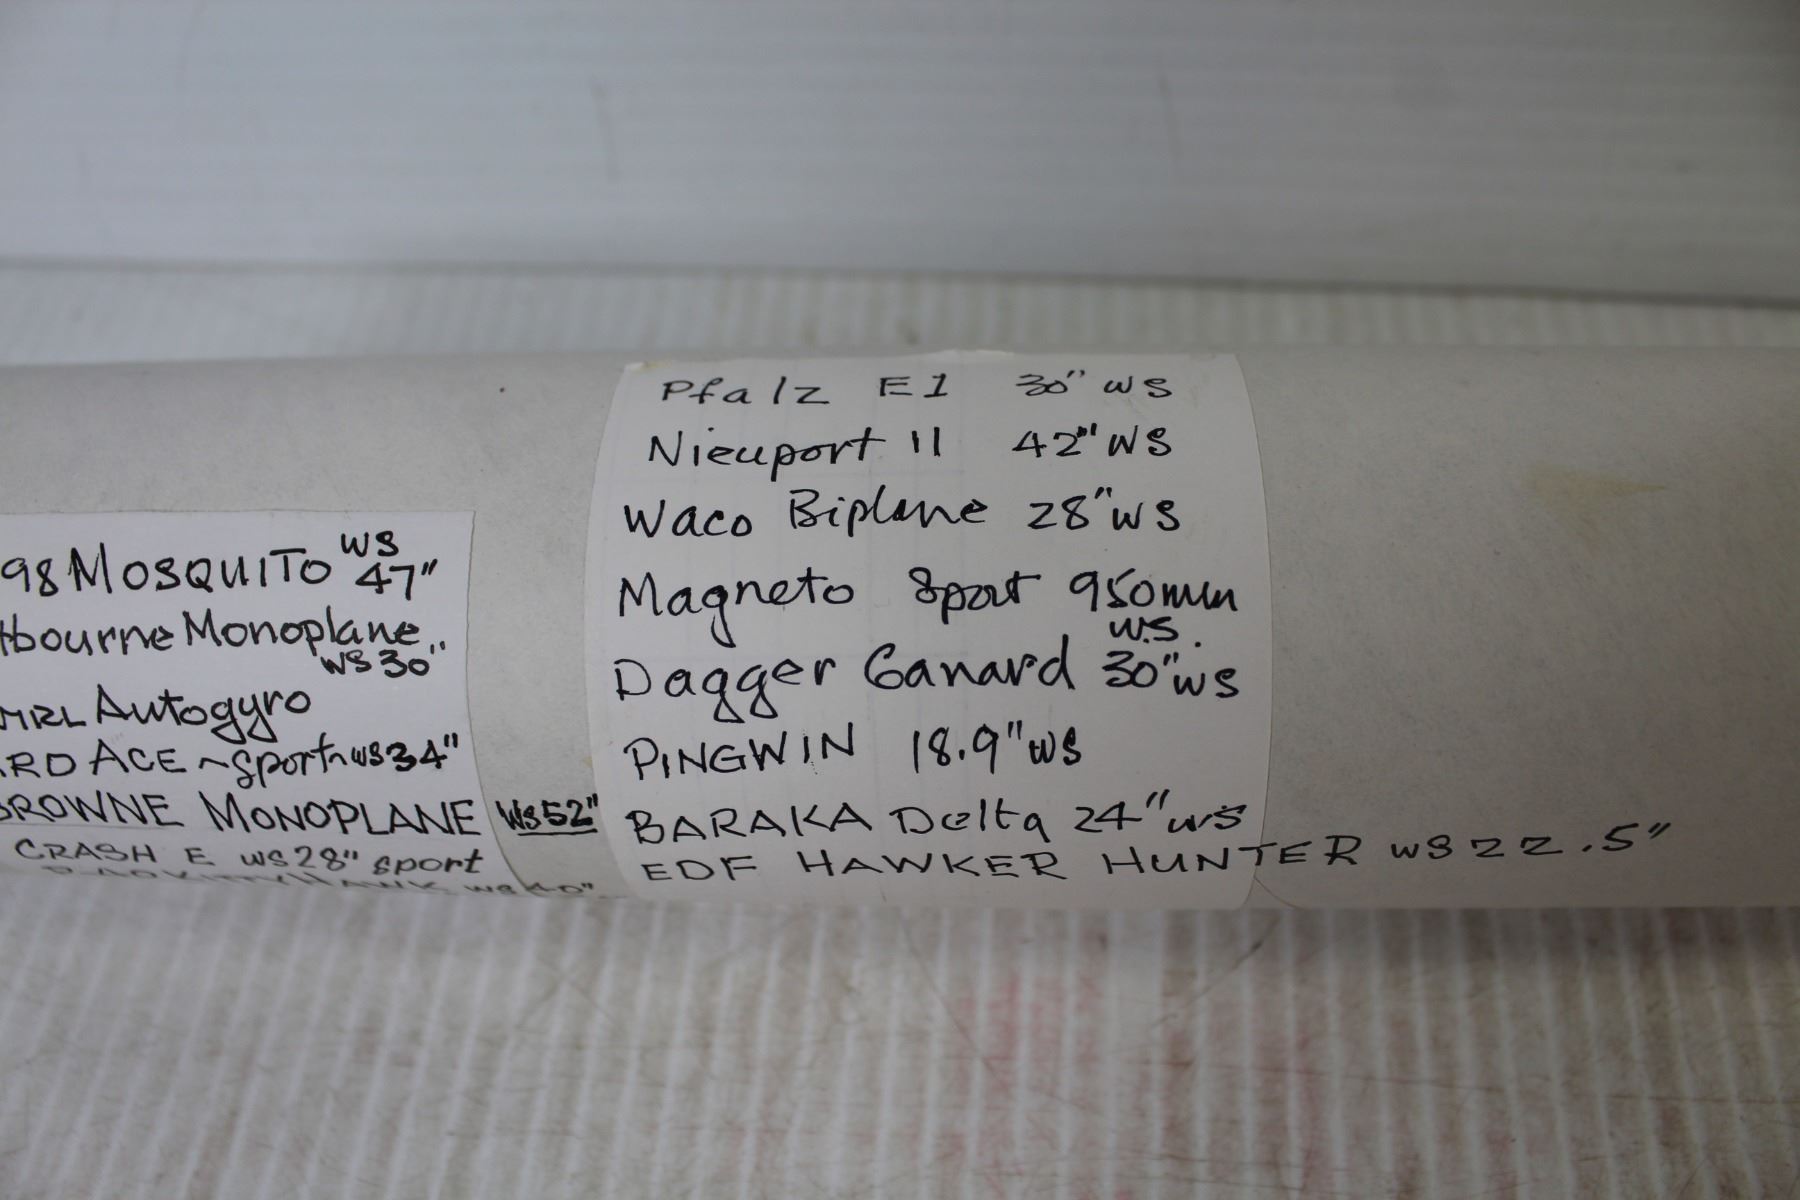 98 MOSQUITO WS 47"
tbourne Monoplane WS 30"
MRL Autogyro
RD ACE ~ Sport ~ WS 34"
BROWNE MONOPLANE WS 52"
CRASH E WS 28" sport
WS 40"
Pfalz E1 30" WS
Nieuport 11 42" WS
Waco Biplane 28" WS
Magneto Sport 950mm W.S.
Dagger Canard 30" WS
PINGWIN 18.9" WS
BARAKA Delta 24" WS
EDF HAWKER HUNTER WS 22.5"